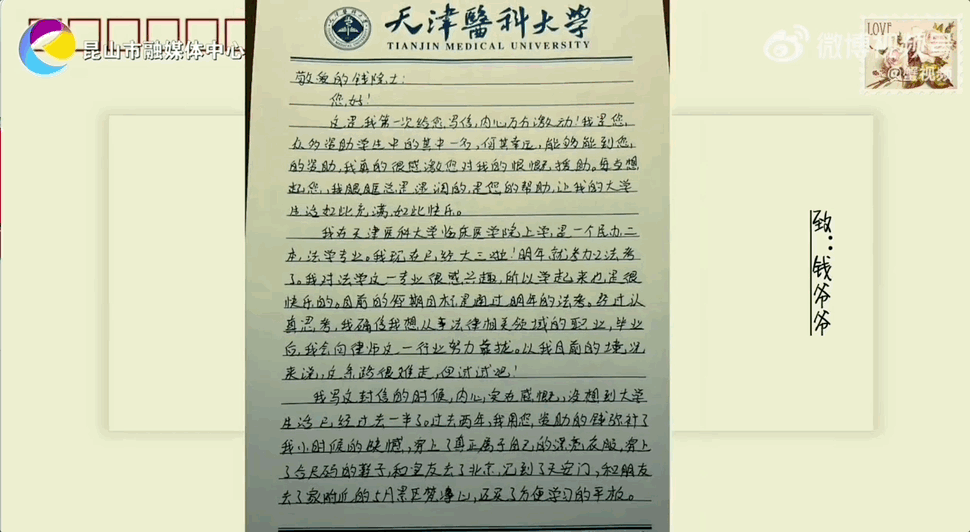 昆山市融媒体中心
微博视频号
LOVE
@蟹视频
天津醫科大学
TIANJIN MEDICAL UNIVERSITY
敬爱的钱院士：
您好！
这是我第一次给您写信，内心万分激动！我是您
众多资助学生中的其中一名，何其幸运，能够能到您
的资助，我真的很感激您对我的慷慨援助。每当想
起您，我眼眶总是湿润的，是您的帮助，让我的大学
生活如此充满，如此快乐。
我在天津医科大学临床医学院上学，是一个民办二
本，法学专业。我现在已经大三啦！明年就参加法考
了。我对法学这一专业很感兴趣，所以学起来也是很
快乐的。目前的短期目标是通过明年的法考。经过认
真思考，我确信我想从事法律相关领域的职业，毕业
后，我会向律师这一行业努力靠拢。以我目前的境况
来说，这条路很难走，但试试吧！
我写这封信的时候，内心实在感慨，没想到大学
生活已经过去一半了。过去两年，我用您资助的钱弥补了
我小时候的缺憾，穿上了真正属于自己的漂亮衣服，穿上
了合尺码的鞋子，和室友去了北京，见到了天安门，和朋友
去了家附近的5A景区梵净山，还买了方便学习的平板。
致：钱爷爷